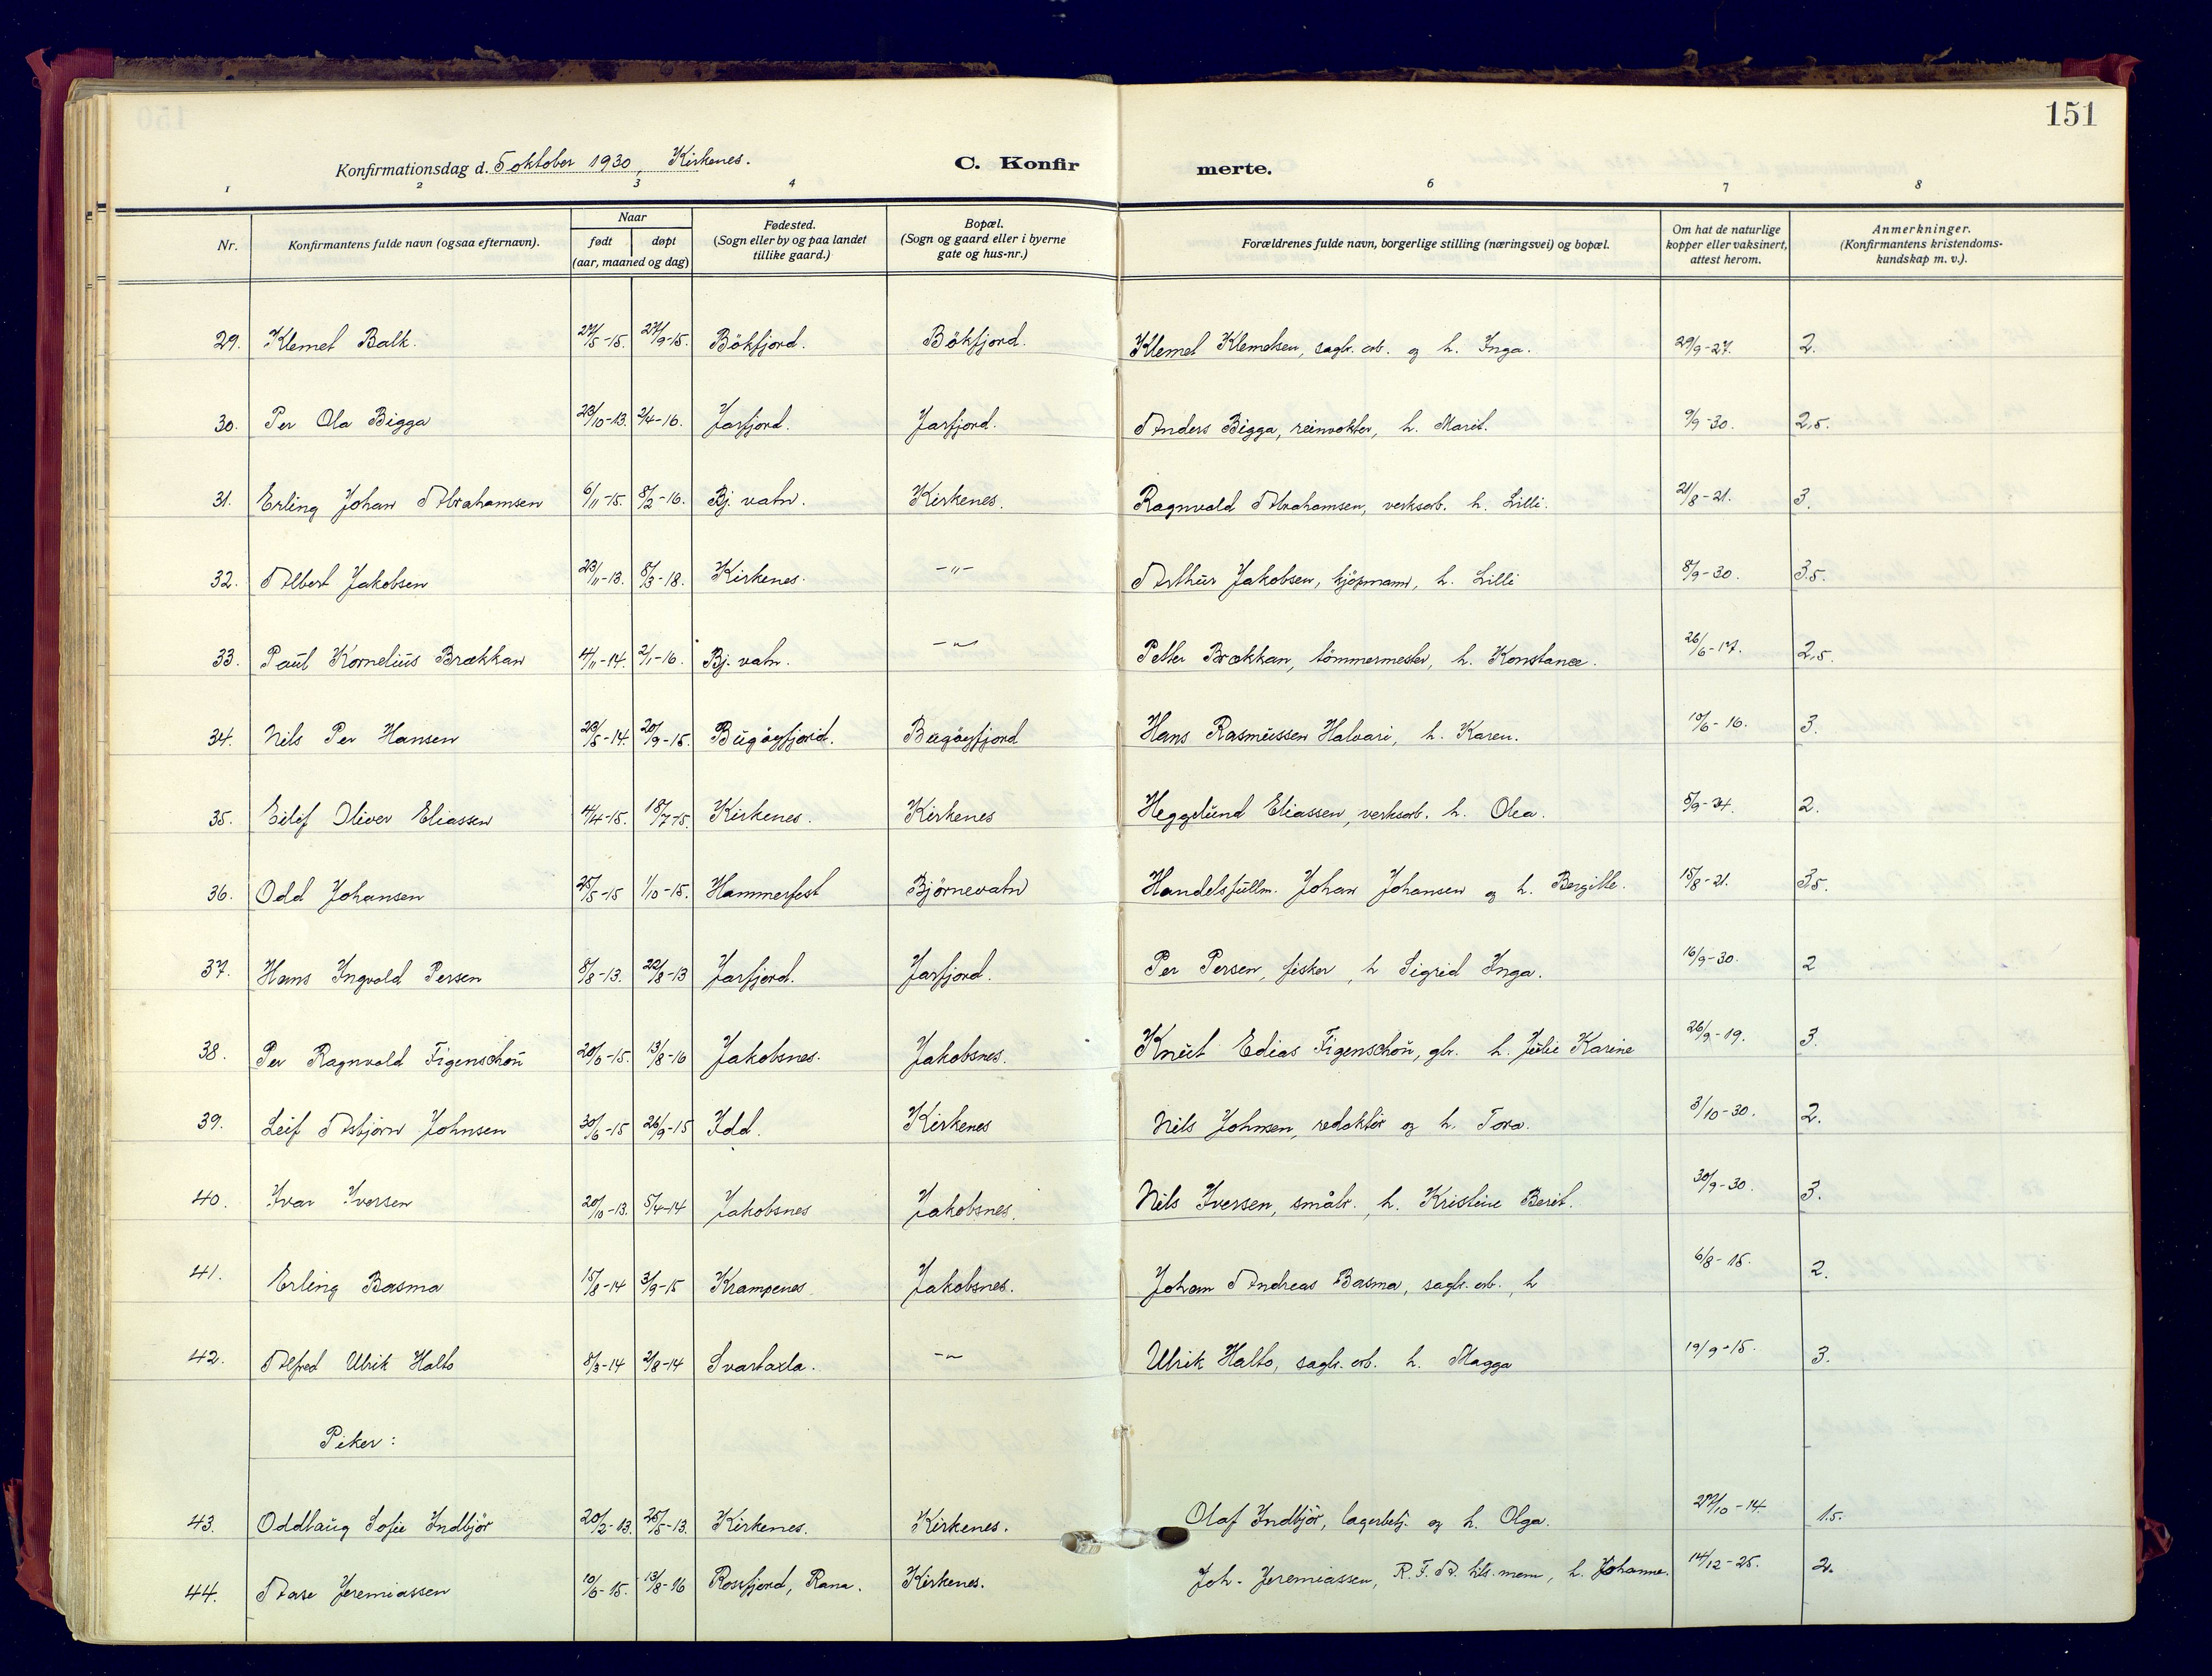 151
Konfirmationsdag d. 5 oktober 1930, Kirkenes. C. Konfir merte.
1 2 3 4 6 7 8
Nr. Konfirmantens fulde navn (ogsaa efternavn). Naar født døpt (aar, maaned og dag) Fødested. (Sogn eller by og paa landet tillike gaard.) Bopæl. (Sogn og gaard eller i byerne gate og hus-nr.) Forældrenes fulde navn, borgerlige stilling (næringsvei) og bopæl. Om hat de naturlige kopper eller vaksinert, attest herom. Anmerkninger. (Konfirmantens kristendoms-kundskap m. v.).
29. Klemet Balk. 27/5-15. 27/9-15. Bökfjord. Bökfjord. Klemet Klemetsen, sagbr. arb. og h. Inga. 29/9-27. 2.
30. Per Ola Bigga 23/10-13. 2/4-16. Jarfjord. Jarfjord. Anders Bigga, reinvokter, h. Marit. 9/9-30. 2,5.
31. Erling Johan Abrahamsen 6/11-15. 8/2-16. Bj. vatn. Kirkenes. Ragnvald Abrahamsen, verksarb. h. Lilli. 21/8-21. 3.
32. Albert Jakobsen 23/11-13. 8/3-18. Kirkenes. -"- Arthur Jakobsen, kjöpmann, h. Lilli 8/9-30. 3.5.
33. Paul Kornelius Brækkan 4/11-14. 2/1-16. Bj. vatn. -"- Petter Brækkan, tömmermester, h. Konstance. 26/6-17. 2,5.
34. Nils Per Hansen 29/5-14. 20/9-15. Bugöyfjord. Bugöyfjord Hans Rasmussen Halvari, h. Karen. 10/6-16. 3.
35. Eilif Oliver Eliassen 4/4-15. 18/7-15. Kirkenes. Kirkenes Heggelund Eliassen, verksarb. h. Olea. 5/9-24. 2.
36. Odd Johansen 25/5-15 1/10-15. Hammerfest Björnevatn Handelsfullm. Johan Johansen og h. Bergitte. 15/8-21. 3.5.
37. Hans Ingvald Persen 8/8-13. 22/8-13 Jarfjord. Jarfjord. Per Persen, fisker, h Sigrid Inga. 16/9-30. 2
38. Per Ragnvald Figenschou 20/6-15. 13/8-16 Jakobsnes. Jakobsnes. Knut Edias Figenschou, gbr. h. Julie Karine 26/9-19. 3.
39. Leif Asbjörn Johnsen 30/6-15 26/9-15 Idd. Kirkenes Nils Johnsen, redaktör og h. Tora. 3/10-30. 2.
40. Ivar Iversen 20/10-13. 5/4-14 Jakobsnes Jakobsnes. Nils Iversen, småbr., h. Kristine Berit. 30/9-30. 3.
41. Erling Basma 15/8-14 3/9-15 Krampenes Jakobsnes. Johan Andreas Basma, sagbr. arb., h 6/8-15. 2.
42. Alfred Ulrik Halto 8/3-14 2/8-14 Svartaxla. -"- Ulrik Halto, sagbr. arb. h. Magga 19/9-15. 3.
Piker:
43. Oddlaug Sofie Indbjör 20/2-13. 25/5-13. Kirkenes. Kirkenes. Olaf Indbjör, lagerbetj. og h. Olga. 27/10-14. 1.5.
44. Aase Jeremiassen 10/6-15. 13/8-16 Rossfjord, Rana. Kirkenes. Joh. Jeremiassen, R.F.A. h. Johanne. 14/12-25. 2.